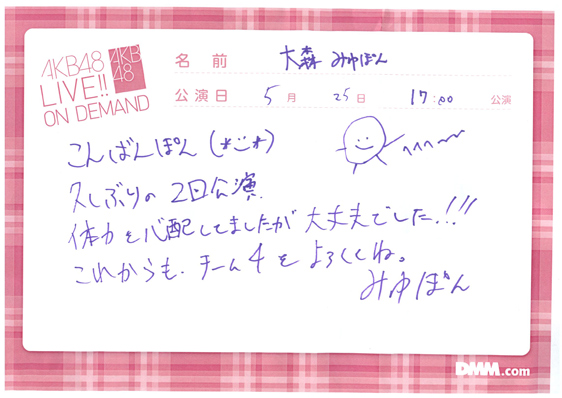 AKB48
LIVE!!
ON DEMAND
AKB
48
名前 大森みゆぽん
公演日 5月 25日 17:00 公演
こんばんぽん(*´ー`*)
久しぶりの2回公演
体力を心配してましたが大丈夫でした!!!
これからも、チーム4をよろしくね。
みゆぽん
DMM.com